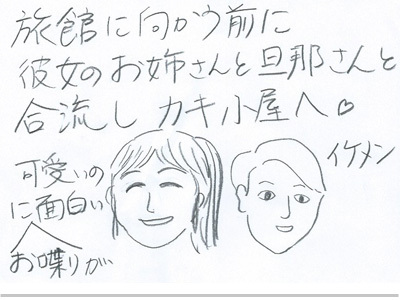 旅館に向かう前に
彼女のお姉さんと旦那さんと
合流し カキ小屋へ♡
イケメン
可愛いの
に面白い
お喋りが